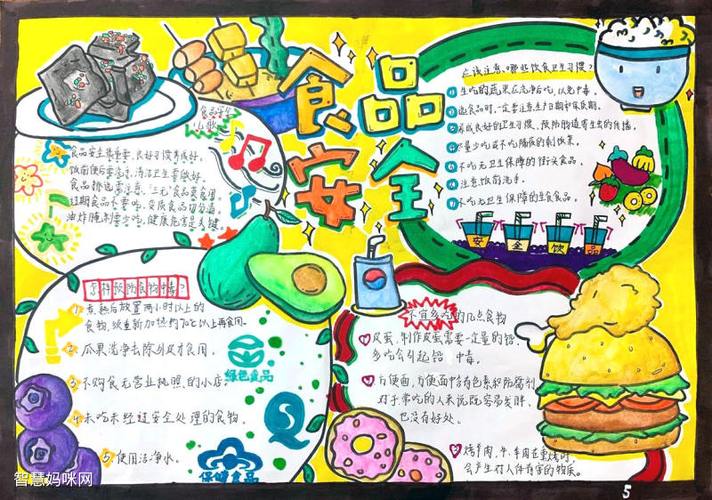 食品安全
食品安全很重要，良好习惯养成好。
饭前便后要洗手，清洁卫生要做好。
食品挑选需注意，"三无"食品莫食用。
过期食品不要吃，变质食品切勿沾。
油炸腌制要少吃，健康危害是关键。
应该注意哪些饮食卫生习惯？
生吃的蔬果应洗净后吃，以免中毒。
选食品时，一定要注意生产日期和保质期。
养成良好的卫生习惯，预防肠道寄生虫的传播。
尽量少吃或不吃隔夜的剩饭菜。
不吃无卫生保障的街头食品。
注意饭前洗手。
不吃无卫生保障的生食食品。
安 全 饮 品
怎样预防食物中毒？
1
煮熟后放置两小时以上的
食物，须重新加热约70℃以上再食用。
2
瓜果洗净去除外皮才食用。
3
不购食无营业执照的小店。
4
未吃未经过安全处理的食物。
5
使用洁净水。
绿色食品
保健食品
不宜多吃的几点食物
皮蛋，制作皮蛋需要一定量的铅，
多吃会引起铅 中毒。
方便面，方便面中含有色素和防腐剂
对于常吃的人来说既容易发胖、
也没有好处。
烤羊肉，牛、羊肉在熏烤时，
会产生对人体有害的物质。
智慧妈咪网
5